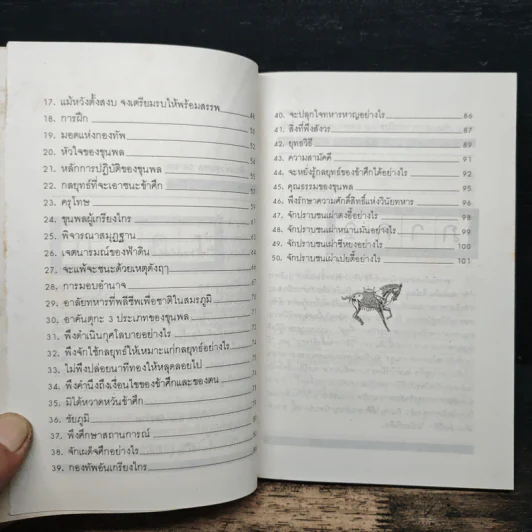 17. แม้หวังตั้งสงบ จงเตรียมรบให้พร้อมสรรพ 48
18. การฝึก
19. มอดแห่งกองทัพ
20. หัวใจของขุนพล
21. หลักการปฏิบัติของขุนพล
22. กลยุทธ์ที่จะเอาชนะข้าศึก
23. ครุโทษ
24. ขุนพลผู้เกรียงไกร
25. พิจารณาสมุฏฐาน
26. เจตนารมณ์ของฟ้าดิน
27. จะแพ้จะชนะด้วยเหตุดังฤา
28. การมอบอำนาจ
29. อาลัยทหารที่พลีชีพเพื่อชาติในสมรภูมิ
30. อาคันตุกะ 3 ประเภทของขุนพล
31. พึงดำเนินกุศโลบายอย่างไร
32. พึงจักใช้กลยุทธ์ให้เหมาะแก่กลยุทธ์อย่างไร
33. ไม่พึงปล่อยนาทีทองให้หลุดลอยไป
34. พึงคำนึงถึงเงื่อนไขของข้าศึกและของตน
35. มิได้หวาดหวั่นข้าศึก
36. ชัยภูมิ
37. พึงศึกษาสถานการณ์
38. จักเผด็จศึกอย่างไร
39. กองทัพอันเกรียงไกร
40. จะปลุกใจทหารหาญอย่างไร 86
41. สิ่งที่พึงสังวร 87
42. ยุทธวิธี 89
43. ความสามัคคี 91
44. จะหยั่งรู้กลยุทธ์ของข้าศึกได้อย่างไร 92
45. คุณธรรมของขุนพล 95
46. พึงรักษาความศักดิ์สิทธิ์แห่งวินัยทหาร 96
47. จักปราบชนเผ่าตงอี๋อย่างไร 98
48. จักปราบชนเผ่าหน่านมันอย่างไร 99
49. จักปราบชนเผ่าซีหยงอย่างไร 100
50. จักปราบชนเผ่าเป่ยตี๋อย่างไร 101